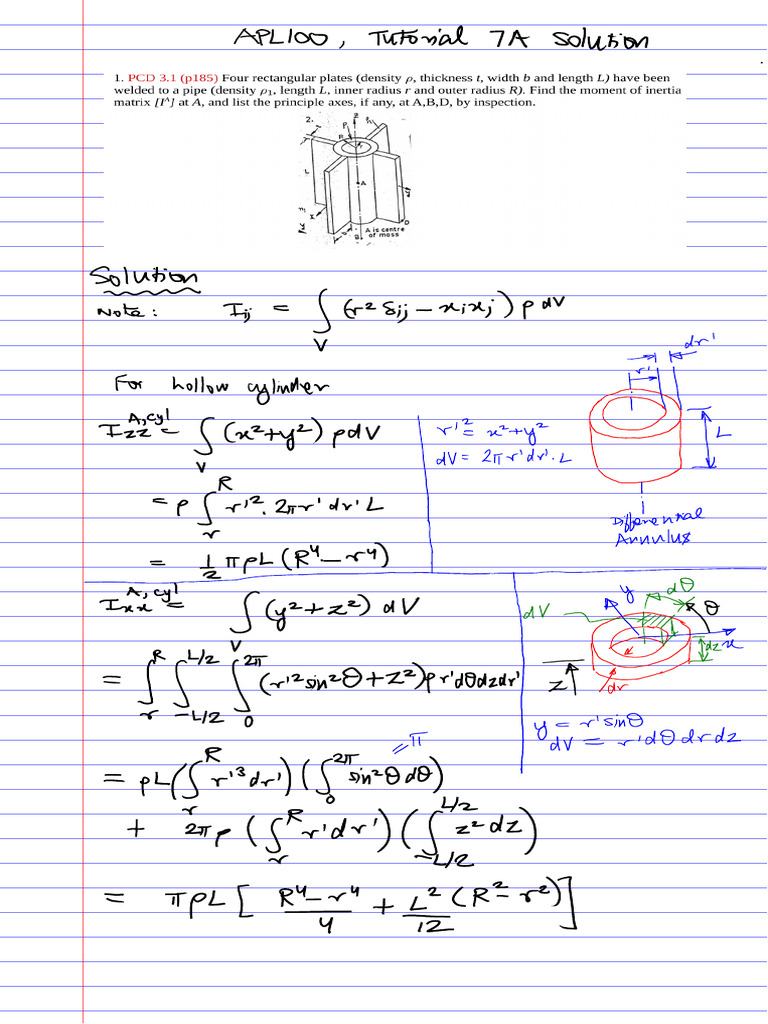 APL100, Tutorial 7A Solution
1. PCD 3.1 (p185) Four rectangular plates (density ρ, thickness t, width b and length L) have been
welded to a pipe (density ρ₁, length L, inner radius r and outer radius R). Find the moment of inertia
matrix [Iᴬ] at A, and list the principle axes, if any, at A,B,D, by inspection.
2.
z
R
L
A
x
D
B
A is centre
of mass
Solution
Note: I_ij = ∫_V (r² δij − x_i x_j) ρ dV
dr'
r'
For hollow cylinder
I_zz^{A,cyl} = ∫_V (x²+y²) ρdV
r'² = x²+y²
dV = 2πr'dr'.L
L
= ρ ∫_r^R r'². 2πr'dr'L
Differential
Annulus
= 1/2 πρL (R⁴ − r⁴)
I_xx^{A,cyl} = ∫_V (y²+z²) dV
dV
y
dθ
θ
dz
x
= ∫_r^R ∫_{-L/2}^{L/2} ∫_0^{2π} (r'² sin²θ + z²) ρ r'dθdzdr'
z
dr
y = r'sinθ
dV = r'dθ dr dz
= ρL (∫_r^R r'³ dr') (∫_0^{2π} sin²θ dθ) = π
+ 2πρ (∫_r^R r'dr') (∫_{-L/2}^{L/2} z² dz)
= πρL [ (R⁴ − r⁴)/4 + L²/12 (R² − r²) ]